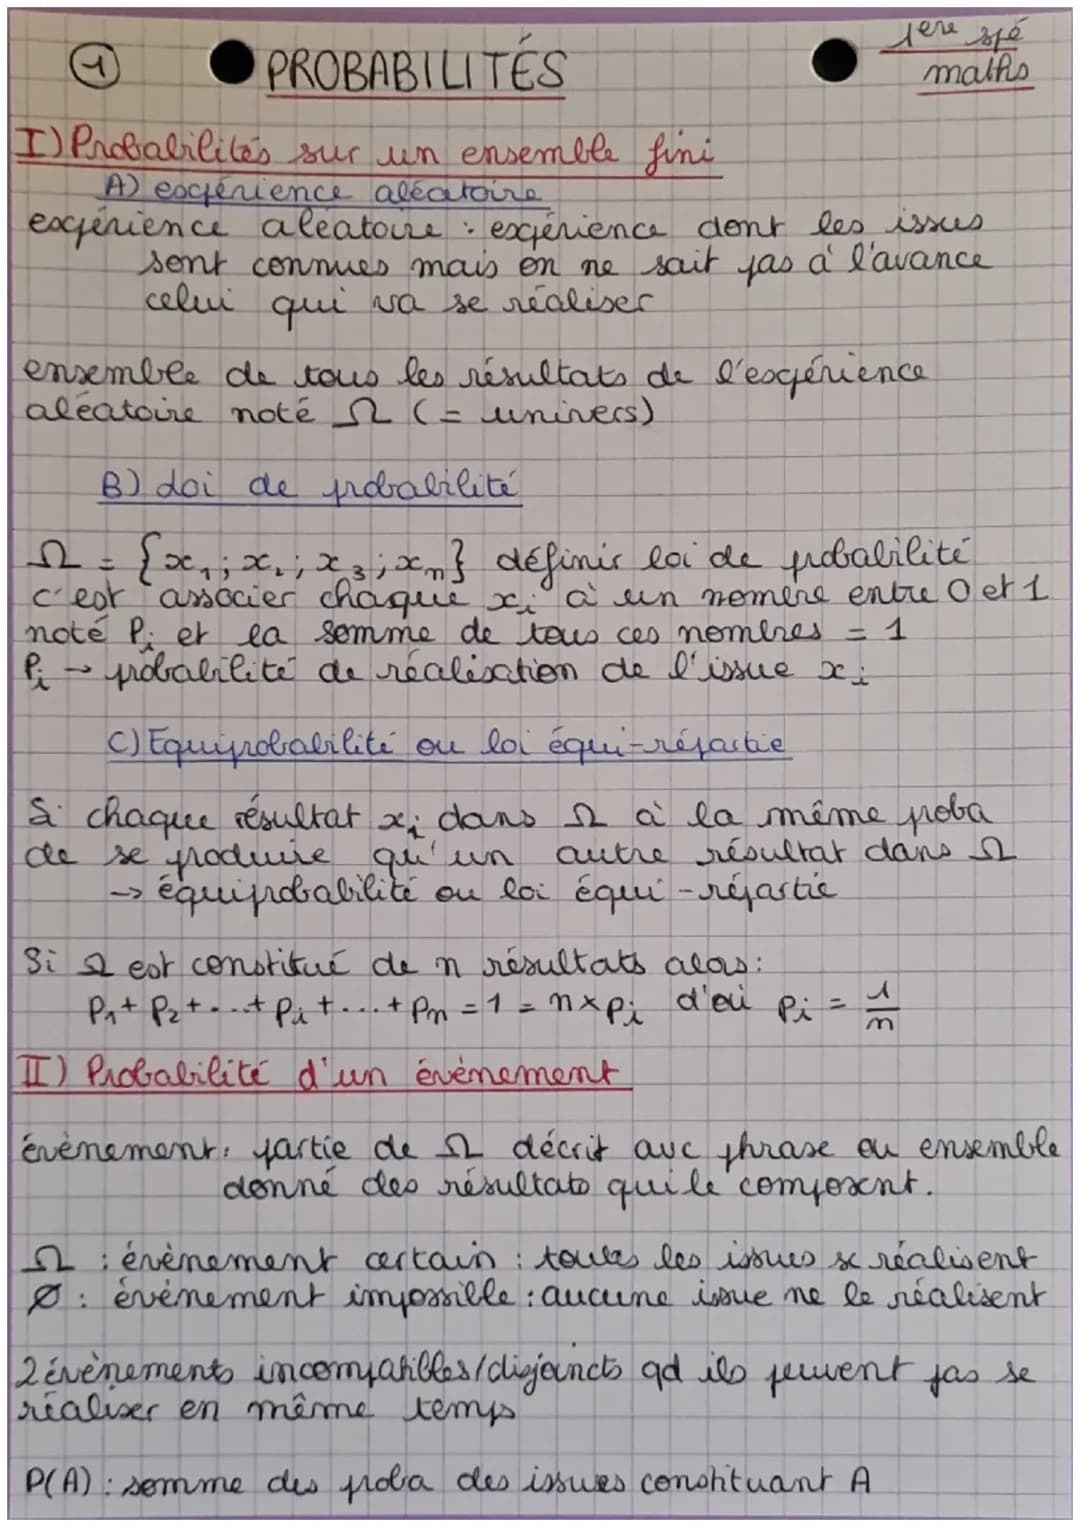 1
PROBABILITÉS
1ère spé
maths
I) Probabilités sur un ensemble fini
A) expérience aléatoire
expérience aléatoire : expérience dont les issues
sont connues mais on ne sait pas à l'avance
celui qui va se réaliser
ensemble de tous les résultats de l'expérience
aléatoire noté Ω (= univers)
B) Loi de probabilité
Ω = {x₁; x₂; x₃; xₙ} définir loi de probabilité
c'est associer chaque xᵢ à un nombre entre 0 et 1
noté Pᵢ et la somme de tous ces nombres = 1
Pᵢ → probabilité de réalisation de l'issue xᵢ
C) Equiprobabilité ou loi équi-répartie
Si chaque résultat xᵢ dans Ω à la même proba
de se produire qu'un autre résultat dans Ω
→ équiprobabilité ou loi équi-répartie
Si Ω est constitué de n résultats alors:
P₁ + P₂ + ... + Pᵢ + ... + Pₙ = 1 = n × Pᵢ d'où Pᵢ = 1/n
II) Probabilité d'un évènement
évènement: partie de Ω décrit avc phrase ou ensemble
donné des résultats qui le composent.
Ω : évènement certain : toutes les issues se réalisent
Ø : évènement impossible : aucune issue ne le réalisent
2 évènements incompatibles/disjoincts qd ils peuvent pas se
réaliser en même temps
P(A) : somme des proba des issues constituant A